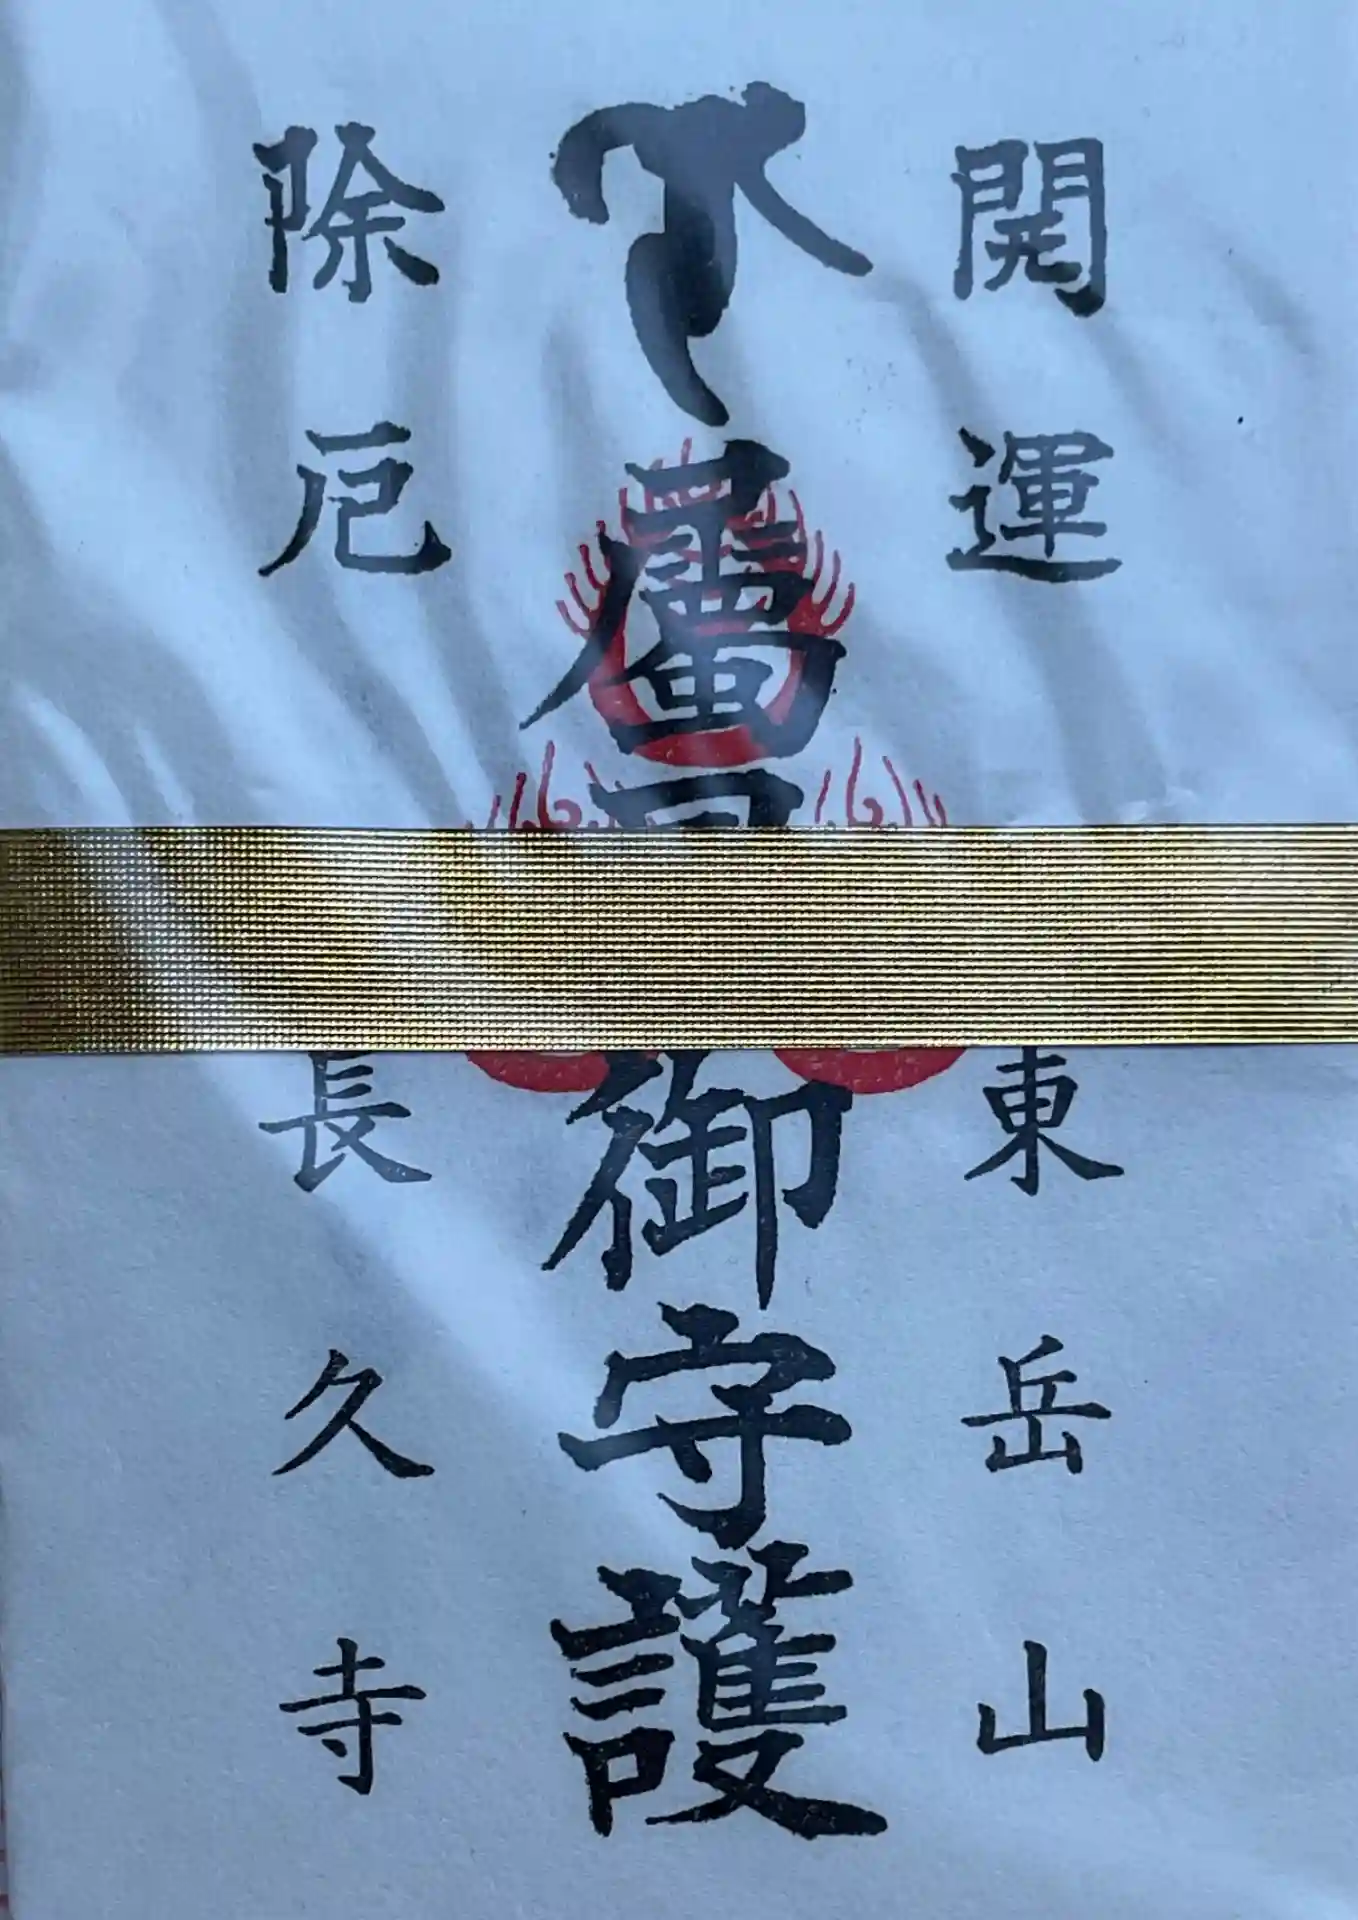 開運 東岳山
御守護
除厄 長久寺